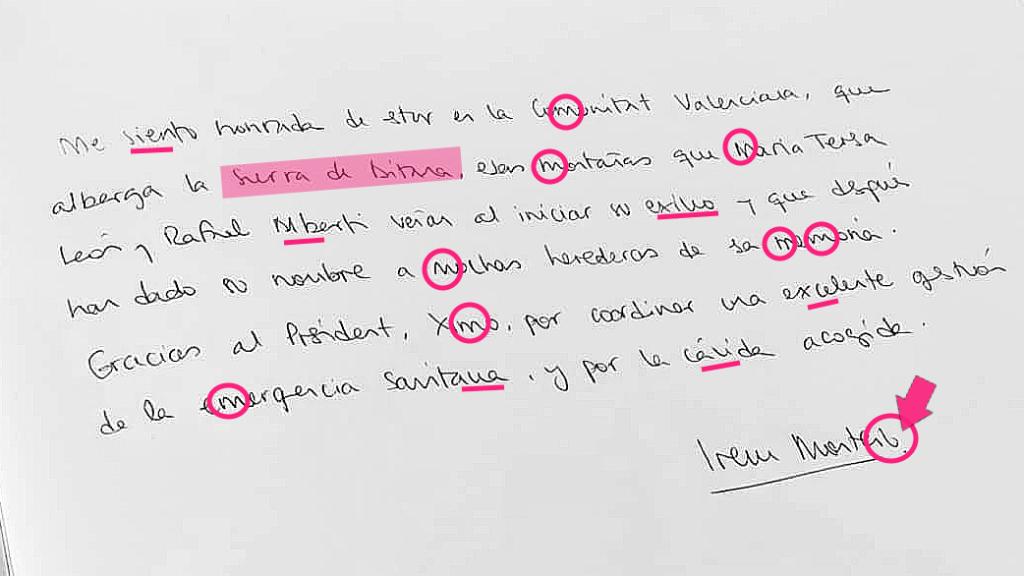 Me siento honrada de estar en la Comunitat Valenciana, que
alberga la Sierra de Aitana, esas montañas que María Teresa
León y Rafael Alberti veían al iniciar su exilio y que después
han dado su nombre a muchas herederas de su memoria.
Gracias al President, Ximo, por coordinar una excelente gestión
de la emergencia sanitaria, y por la cálida acogida.
Irene Montero.